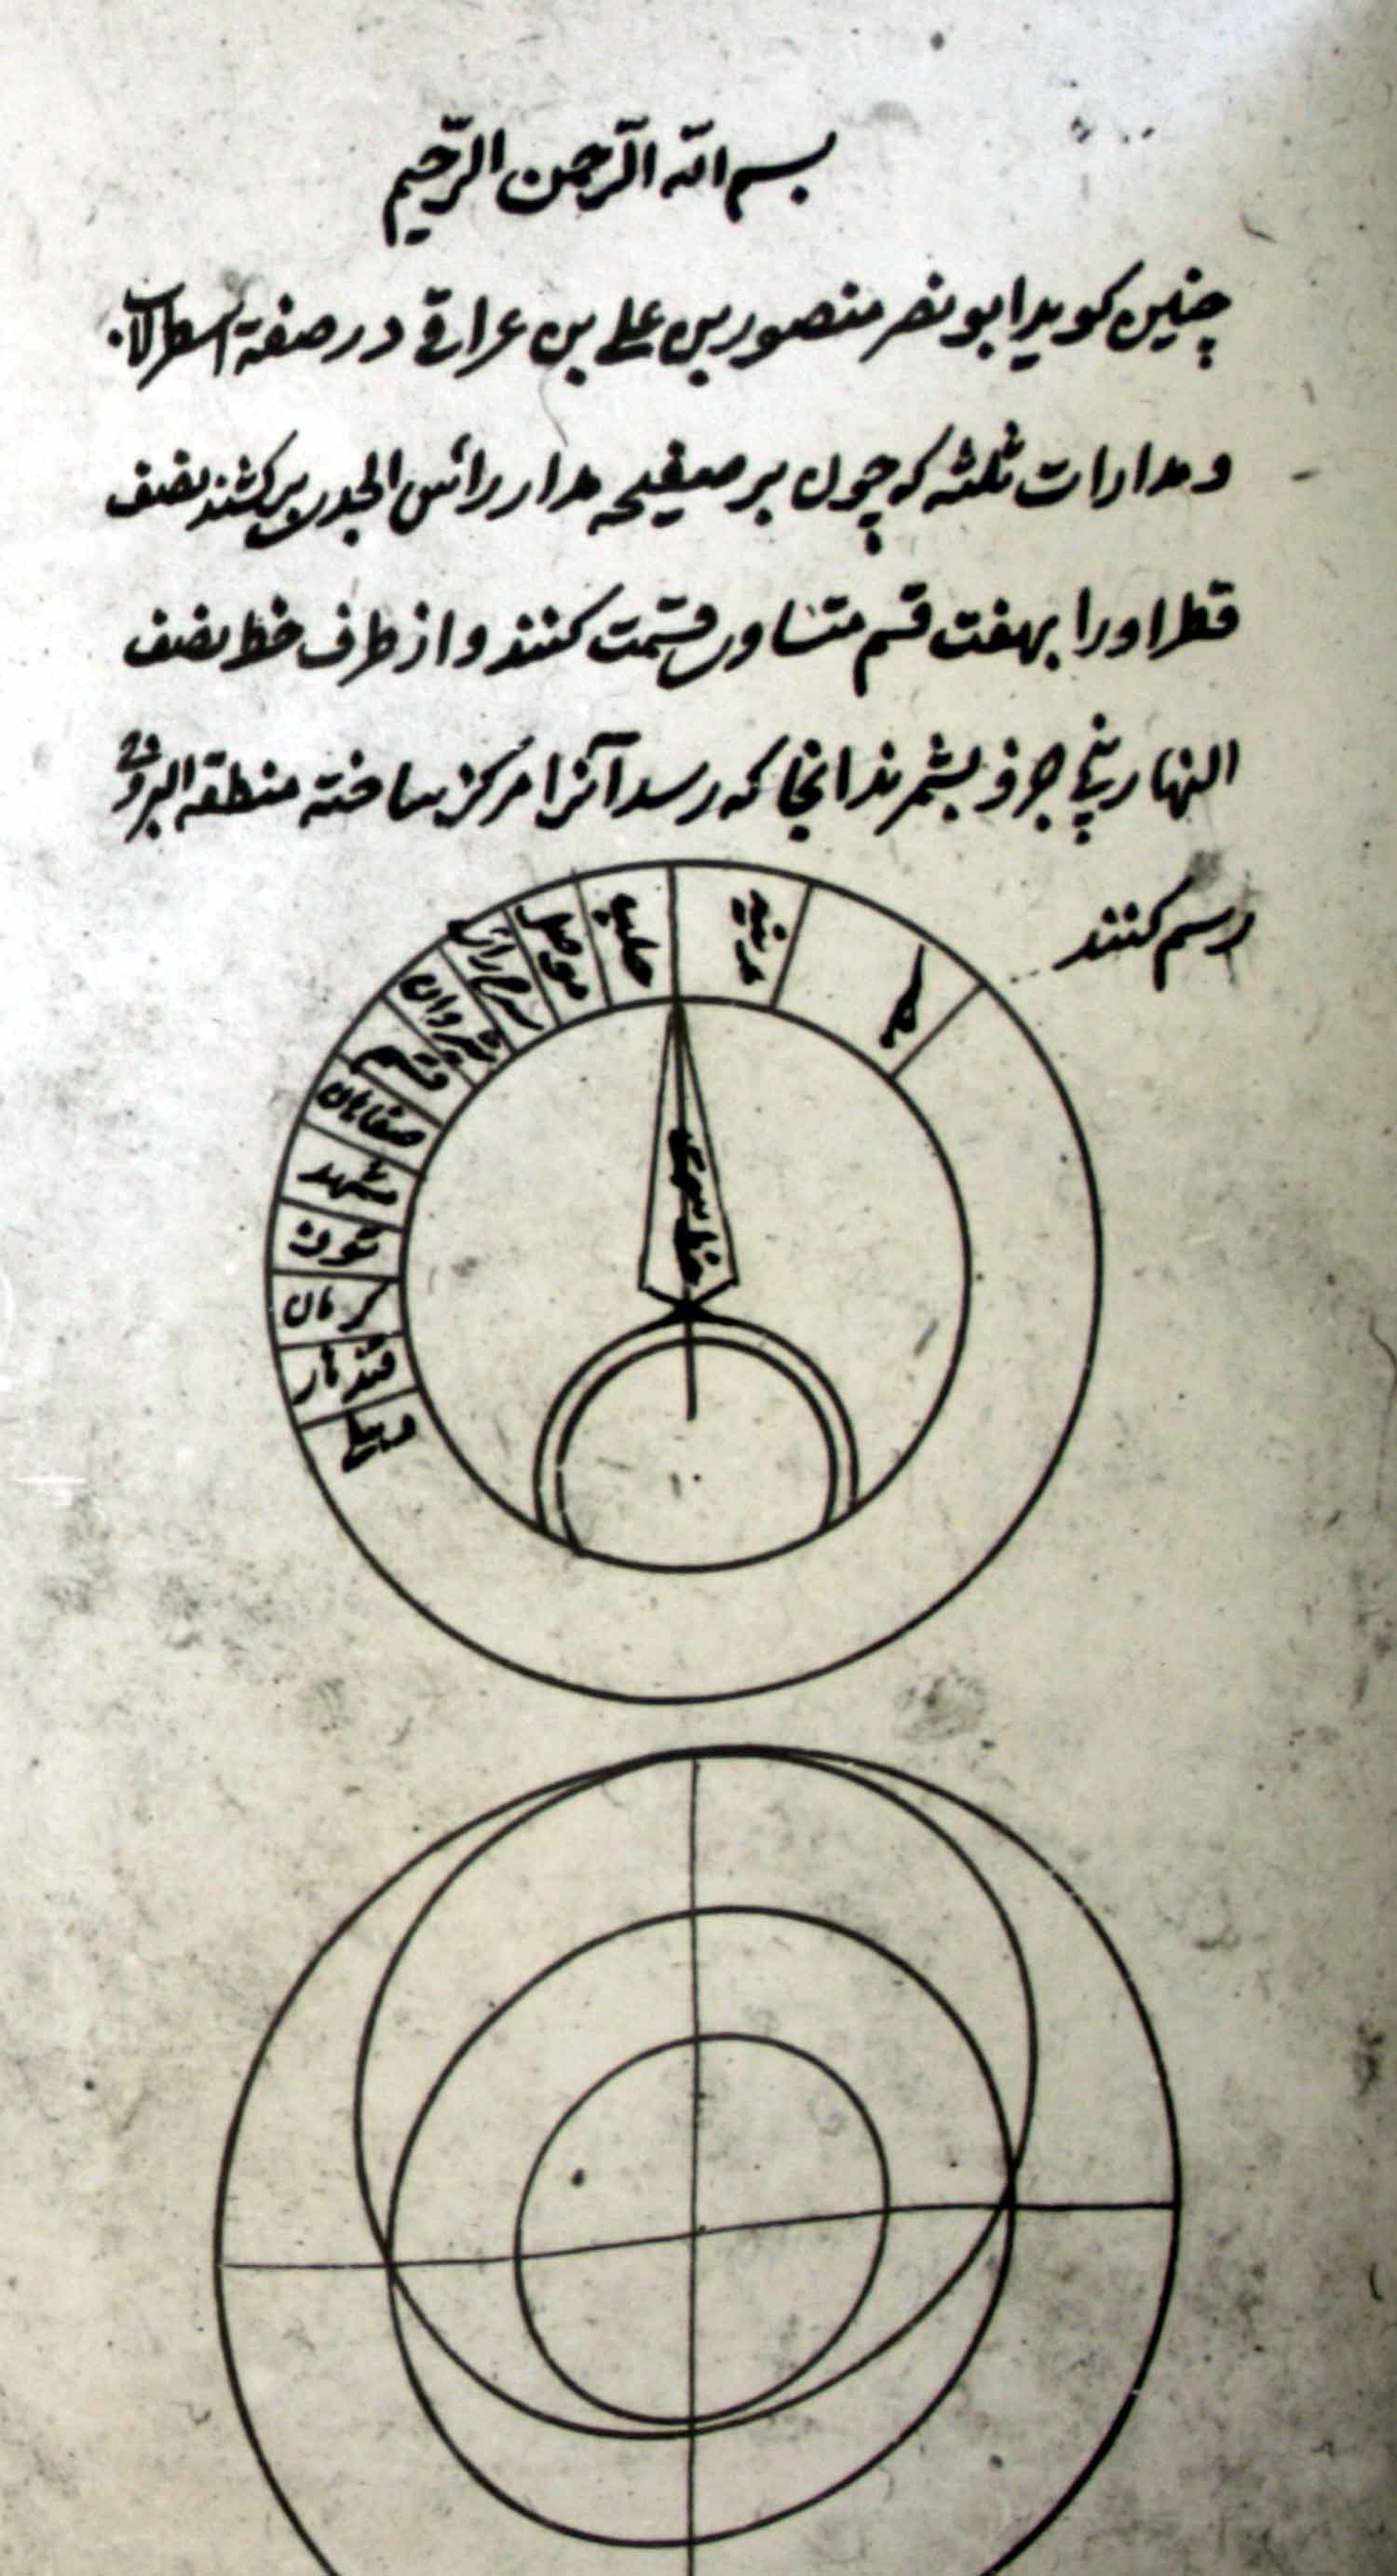 بسم الله الرّحمن الرّحيم
چنین کوید ابو نصر منصور بن علی بن عراقی در صفة اسطرلاب
و مدارات ثلثه که چون بر صفیحه مدار رائس الجدی برکشند نصف
قطر او را بهفت قسم متساوی قسمت کنند و از طرف خط نصف
النهار پنج جزو بشمرند انجا که رسد آنرا مرکز ساخته منطقه البروج
رسم کنند
مصر
مدینه
حلب
موصل
شیروان
قم
صفاهان
مشهد
تون
کرمان
قندهار
دهلی